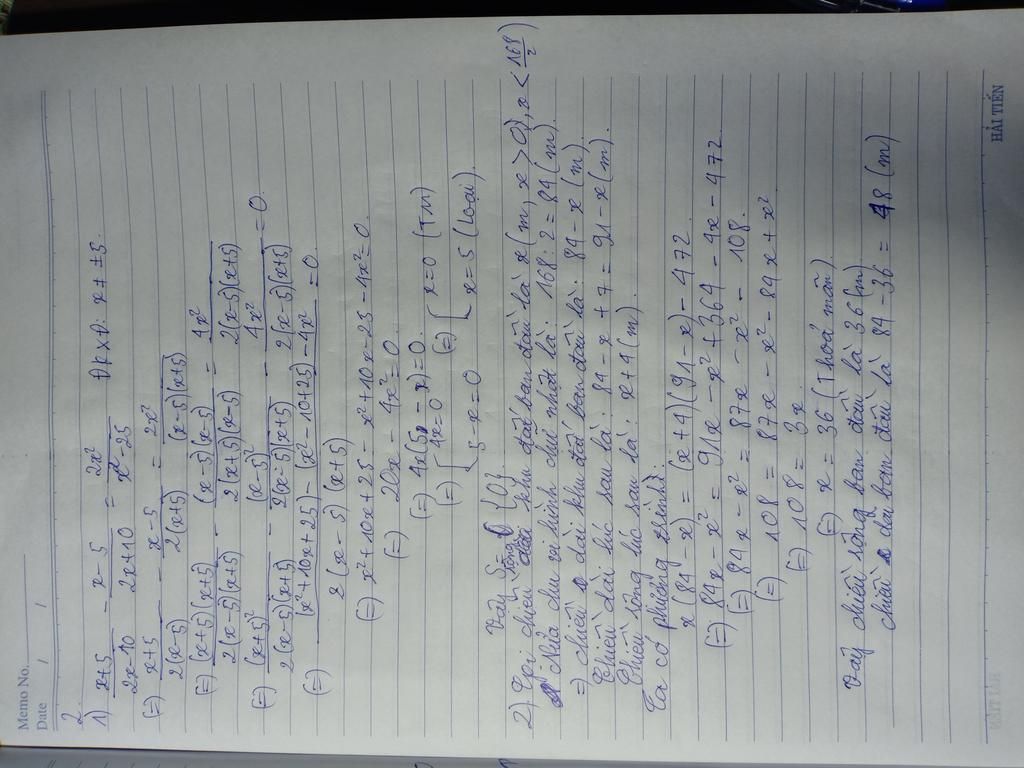 Memo No.
Date / /
2.
1) x+5/2x-10 - x-5/2x+10 = 2x²/x²-25 ĐKXĐ: x ≠ ±5.
(=) x+5/2(x-5) - x-5/2(x+5) = 2x²/(x-5)(x+5)
(=) (x+5)(x+5)/2(x-5)(x+5) - (x-5)(x-5)/2(x+5)(x-5) = 4x²/2(x-5)(x+5)
(=) (x+5)²/2(x-5)(x+5) - (x-5)²/2(x-5)(x+5) - 4x²/2(x-5)(x+5) = 0.
(=) (x²+10x+25)-(x²-10+25)-4x²/2(x-5)(x+5) = 0.
(=) x²+10x+25 - x²+10x-25-4x²=0.
(=) 20x - 4x²=0
(=) 4x(5 - x)=0.
(=) [4x=0 (=) [x=0 (TM)
5-x=0 x=5 (Loại)
Vậy S = {0}.
2) Gọi chiều rộng khu đất ban đầu là x (m, x>0), x < 168/2)
Nửa chu vi hình chữ nhật là: 168:2=84(m).
=) chiều dài khu đất ban đầu là: 84-x (m)
Chiều dài lúc sau là: 84-x+7=91-x(m).
Chiều rộng lúc sau là: x+4(m).
Ta có phương trình:
x(84-x) = (x+4)(91-x)-472
(=) 84x-x² = 91x-x²+364-4x-472
(=) 84x-x² = 87x-x²-108.
(=) 108 = 87x-x²-84x+x²
(=) 108 = 3x
(=) x = 36 (Thoả mãn)
Vậy chiều rộng ban đầu là 36(m)
chiều dài ban đầu là 84-36 = 48(m)
HẢI TIẾN